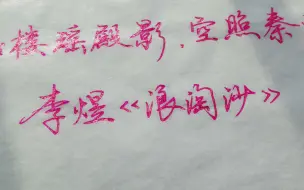 楼瑶殿影，空照秦
李煜《浪淘沙》